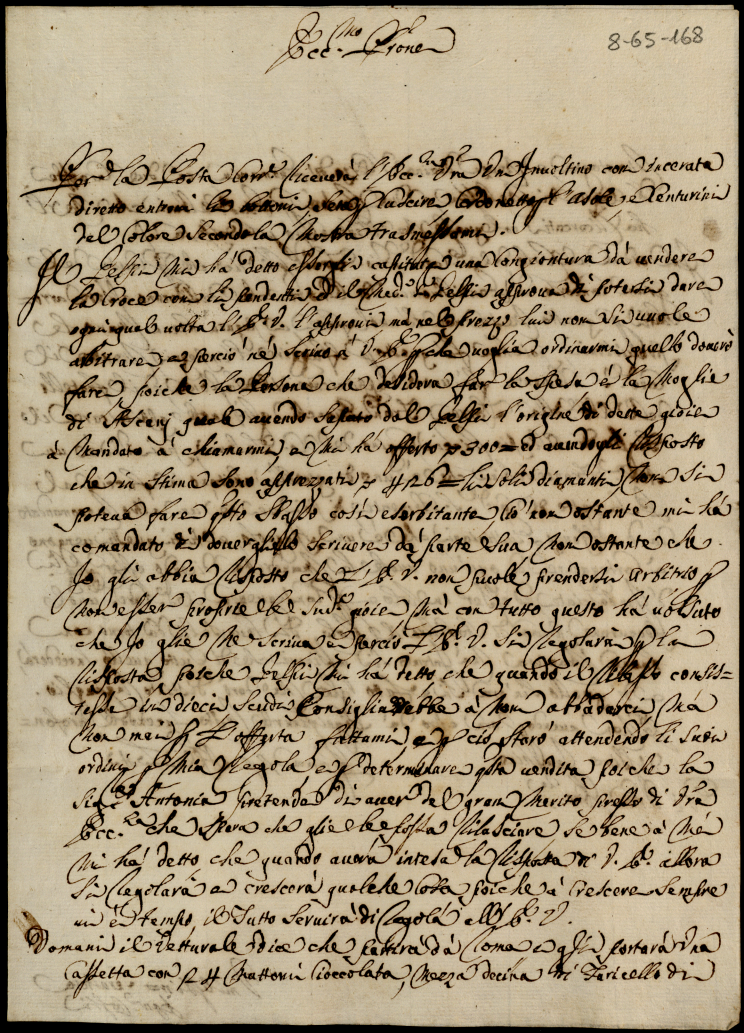 8-65-168
Ecc.mo P.rone
Per la Posta Corr.e riceverà l'Ecc.za V.ra un Involtino con incerata
diretto entrovi li bottoni, seta p cuscire Cordonetto p l'asole, e Centurini
del Colore secondo la Mostra trasmessami.
Il Pessi Mi hà detto essergli capitata una Congiontura da vendere
la Croce con li pendenti, ed il Med.o Pessi approva di potersi dare
ogni qual volta l'E. V. l'approvi, mà nel prezzo lui non si vuole
arbitrare, e perciò né scrivo a V. E. p che voglia ordinarmi quello doverò
fare, poiche la Persona che desidera far la spesa è la Moglie
di Ascenj quale avendo saputo dal Pessi l'origine di dette gioie
à Mandato à chiamarmi, e Mi hà offerto 300= ed avendogli risposto
che in stima sono apprezzati 426= li soli diamanti, Non si
poteva fare sbasso così esorbitante, Ciò non ostante mi hà
comandato di dovergliele scrivere da parte sua, Non ostante che
Io gli abbia risposto che l'E. V. non puole prendersi arbitrio p
non esser proprie le sud.e gioie, Mà con tutto questo hà voluto
che Io glie Ne scriva, e perciò l'E. V. si regolarà p la
risposta, poiche Pessi Mi hà detto che quando il ribasso consis=
tesse in dieci scudi Consigliarebbe à Non abbadarci, Mà
Non mai p l'offerta fattami, e p ciò starò attendendo li suoi
ordini p Mia regola, e p determinare q.ta vendita, poiche la
Sig.ra Antonia pretende di aver del gran Merito presso di V.ra
Ecc.za che spera che glie le possa rilasciare, se bene à Mé
Mi hà detto che quando averà intesa la risposta di V. E. allora
si regolarà a crescerà qualche Cosa, poiche à crescere sempre
vi è tempo, il Tutto servirà di regola all'E. V.
Domani il Vetturale dice che partirà da Roma, e q.sti portarà una
Cassetta con 24 Mattoni Cioccolata, Mezza decina di Faricello di